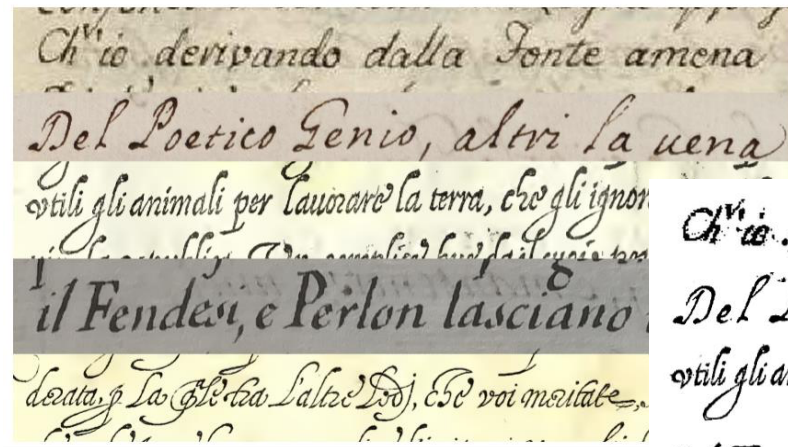 Ch'io derivando dalla Fonte amena
Del Poetico Genio, altri la uena
vtili gli animali per lauorare la terra, che gli ignor
il Fendesi, e Perlon lasciano
derata, p La qle tra L'altre Lodj, che voi meritate,
Ch'io
Del
vtili gli a